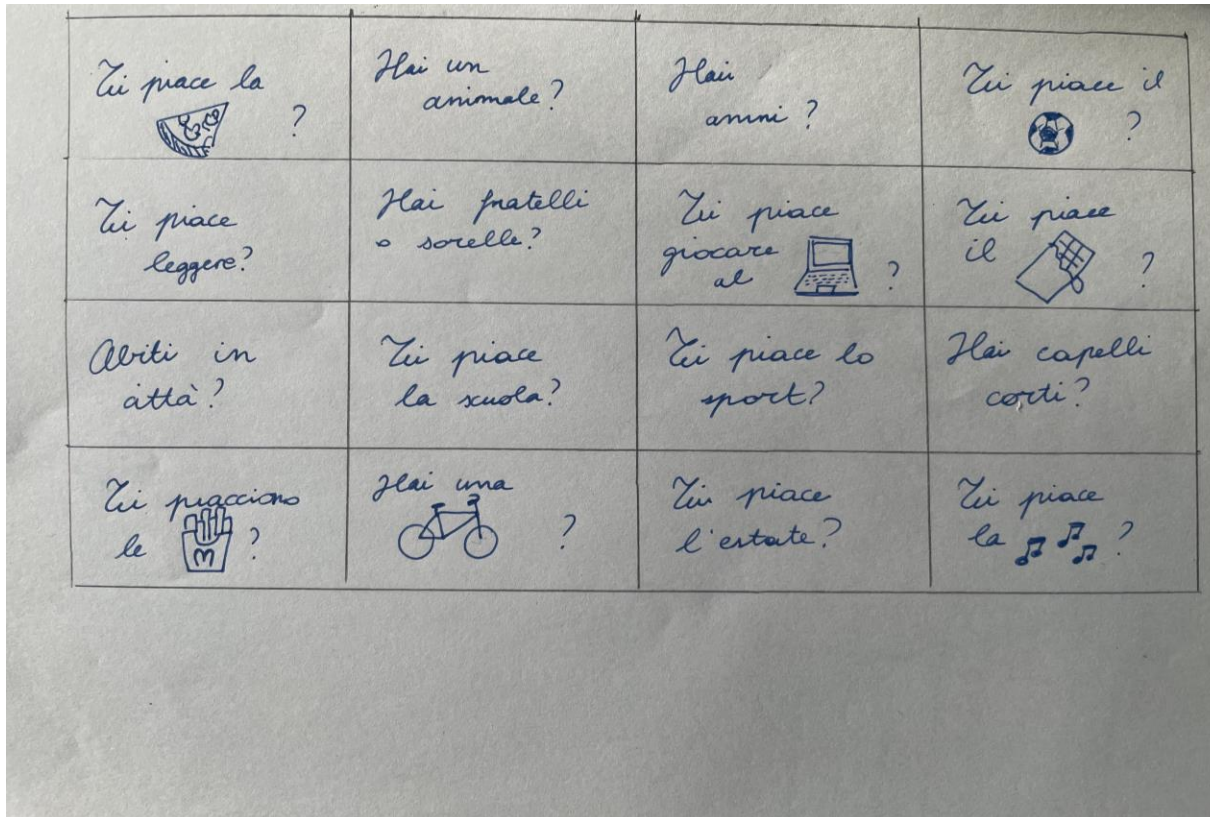 Ti piace la
?
Hai un
animale?
Hai
?
Ti piace il
?
Ti piace
leggere?
Hai fratelli
o sorelle?
Ti piace
giocare
al ?
Ti piace
il ?
Abiti in
città?
Ti piace
la scuola?
Ti piace lo
sport?
Hai capelli
corti?
Ti piacciono
le M ?
Hai una
?
Ti piace
l'estate?
Ti piace
la ?